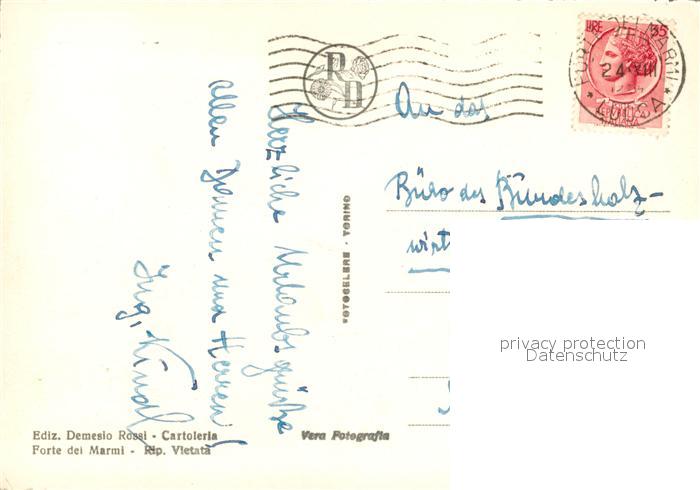 LIRE 35
FORTE DEI MARMI
24 VIII
* LUCCA *
R D
An das
Büro des Bundesholz-
wirt
privacy protection
Datenschutz
Herzliche Urlaubsgrüße
allen Damen und Herren!
Ing.
FOTOCELERE - TORINO
Ediz. Demesio Rossi - Cartoleria
Forte dei Marmi - Rip. Vietata
Vera Fotografia